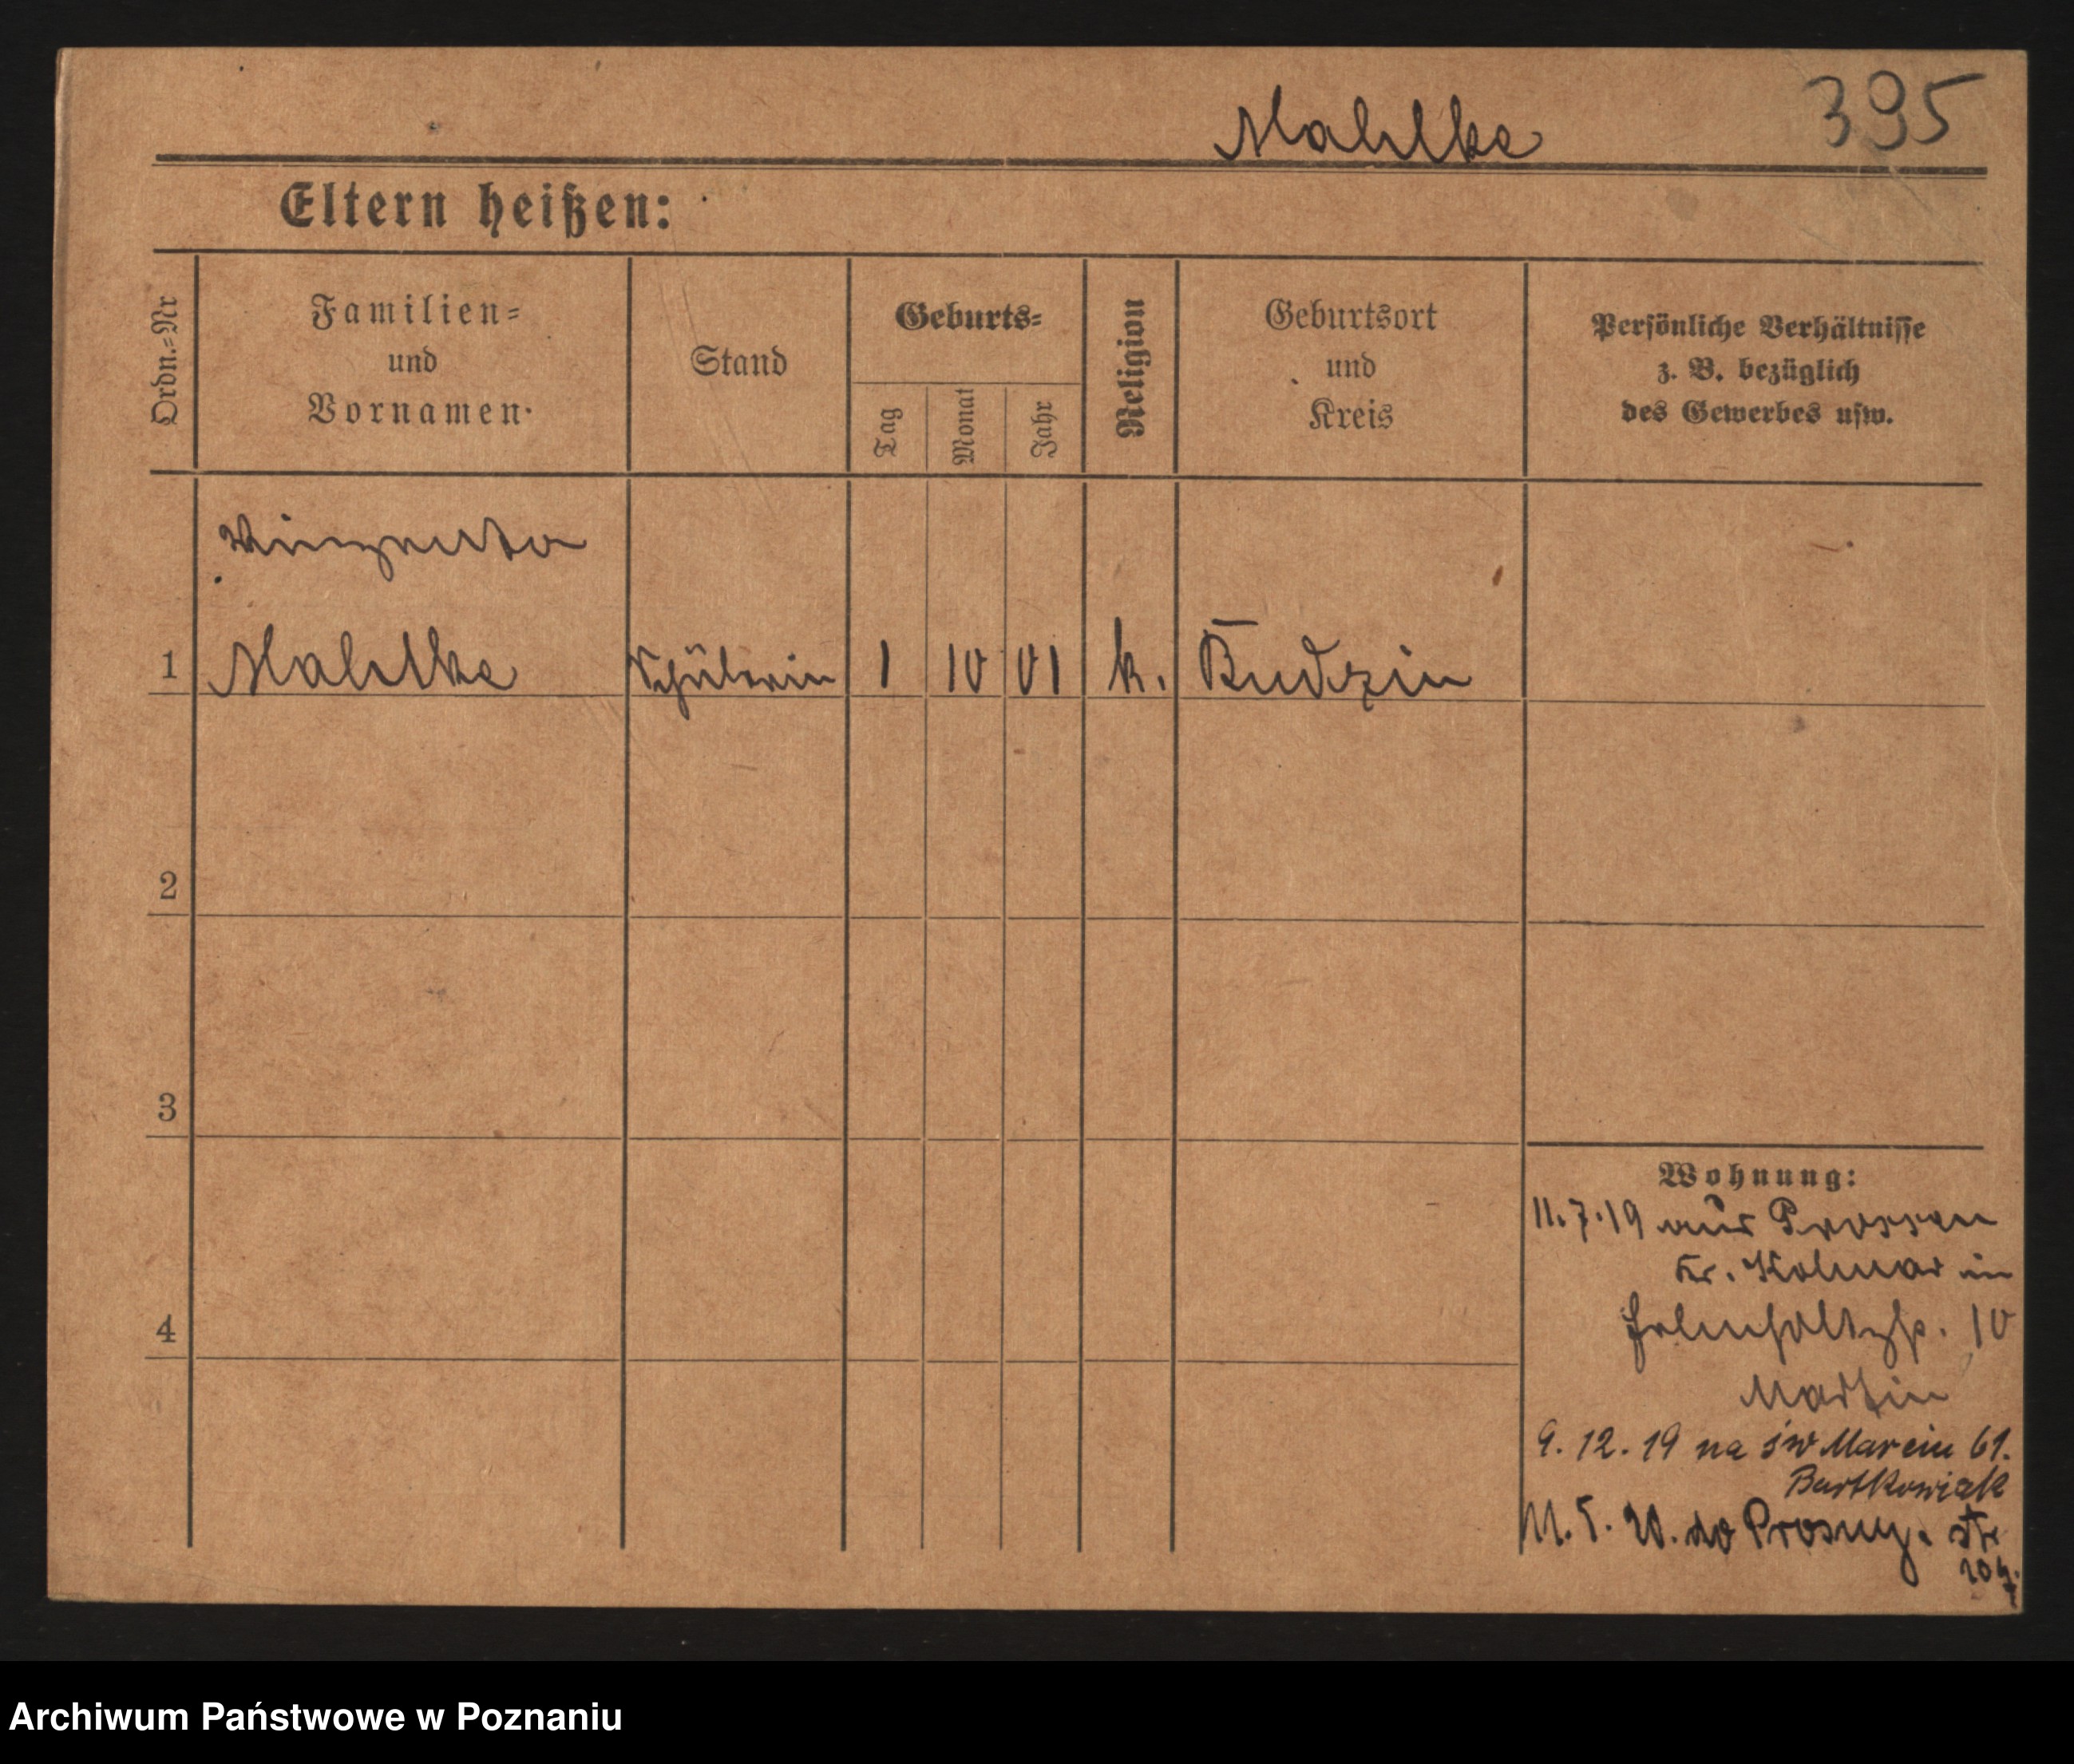 Mahlke 395
Eltern heißen:
Ordn.-Nr
Familien-
und
Vornamen
Stand
Geburts-
Tag
Monat
Jahr
Religion
Geburtsort
und
Kreis
Persönliche Verhältnisse
z. B. bezüglich
des Gewerbes usw.
Vinzenta
1 Mahlke Schülerin 1 10 01 k. Budzin
2
3
4
Wohnung:
11.7.19 aus
Kr. Kolmar in
10
Martin
9. 12. 19 na św Marcin 61.
Bartkowiak
do
Archiwum Państwowe w Poznaniu